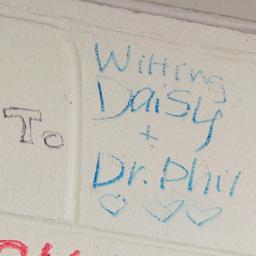 To
Wilting
Daisy
+
Dr. Phil